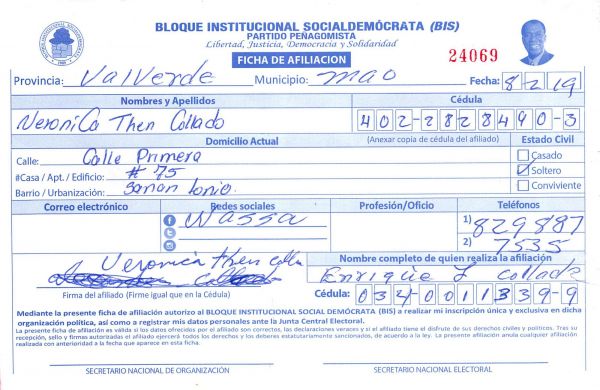 BLOQUE INSTITUCIONAL SOCIALDEMÓCRATA (BIS)
PARTIDO PEÑAGOMISTA
Libertad, Justicia, Democracia y Solidaridad
FICHA DE AFILIACION
24069
Provincia: Valverde Municipio: mao Fecha: 8/2/19
Nombres y Apellidos Cédula
Veronica Then Collado 402-2828490-3
Domicilio Actual (Anexar copia de cédula del afiliado) Estado Civil
Calle: Calle Primera Casado
#Casa / Apt. / Edificio: # 75 Soltero
Barrio / Urbanización: sanan tonio Conviviente
Correo electrónico Redes sociales Profesión/Oficio Teléfonos
Wassa 1) 829887
2) 7535
Veronica then colla
Nombre completo de quien realiza la afiliación
Enrique L collado
Firma del afiliado (Firme igual que en la Cédula) Cédula: 034-0011339-9
Mediante la presente ficha de afiliación autorizo al BLOQUE INSTITUCIONAL SOCIAL DEMÓCRATA (BIS) a realizar mi inscripción única y exclusiva en dicha
organización política, así como a registrar mis datos personales ante la Junta Central Electoral.
La presente ficha de afiliación es válida si los datos ofrecidos por el afiliado son correctos, las declaraciones veraces y si el afiliado tiene el disfrute de sus derechos civiles y políticos. Tras su
recepción, sello y firmas autorizadas el afiliado ejercerá todos los derechos y los deberes estatutariamente sancionados, de acuerdo a la ley. La presente afiliación anula cualquier afiliación
realizada con anterioridad a la fecha que aparece en esta ficha.
SECRETARIO NACIONAL DE ORGANIZACIÓN SECRETARIO NACIONAL ELECTORAL